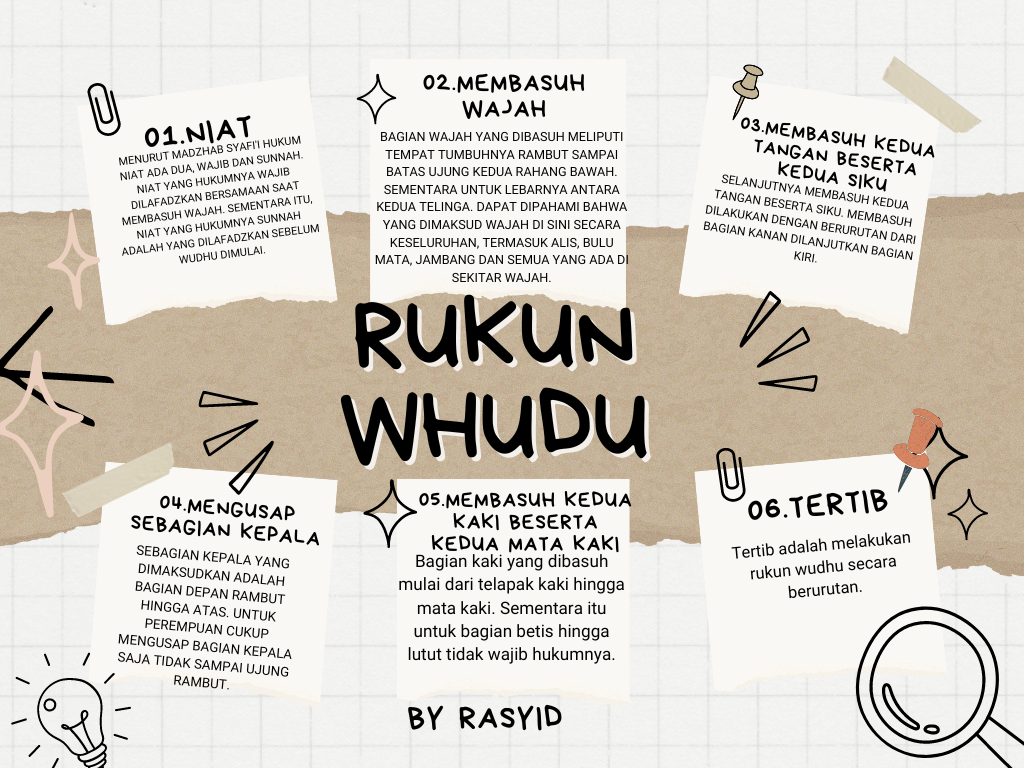 01.NIAT
MENURUT MADZHAB SYAFI'I HUKUM
NIAT ADA DUA, WAJIB DAN SUNNAH.
NIAT YANG HUKUMNYA WAJIB
DILAFADZKAN BERSAMAAN SAAT
MEMBASUH WAJAH. SEMENTARA ITU,
NIAT YANG HUKUMNYA SUNNAH
ADALAH YANG DILAFADZKAN SEBELUM
WUDHU DIMULAI.
02.MEMBASUH
WAJAH
BAGIAN WAJAH YANG DIBASUH MELIPUTI
TEMPAT TUMBUHNYA RAMBUT SAMPAI
BATAS UJUNG KEDUA RAHANG BAWAH.
SEMENTARA UNTUK LEBARNYA ANTARA
KEDUA TELINGA. DAPAT DIPAHAMI BAHWA
YANG DIMAKSUD WAJAH DI SINI SECARA
KESELURUHAN, TERMASUK ALIS, BULU
MATA, JAMBANG DAN SEMUA YANG ADA DI
SEKITAR WAJAH.
03.MEMBASUH KEDUA
TANGAN BESERTA
KEDUA SIKU
SELANJUTNYA MEMBASUH KEDUA
TANGAN BESERTA SIKU. MEMBASUH
DILAKUKAN DENGAN BERURUTAN DARI
BAGIAN KANAN DILANJUTKAN BAGIAN
KIRI.
RUKUN
WHUDU
04.MENGUSAP
SEBAGIAN KEPALA
SEBAGIAN KEPALA YANG
DIMAKSUDKAN ADALAH
BAGIAN DEPAN RAMBUT
HINGGA ATAS. UNTUK
PEREMPUAN CUKUP
MENGUSAP BAGIAN KEPALA
SAJA TIDAK SAMPAI UJUNG
RAMBUT.
05.MEMBASUH KEDUA
KAKI BESERTA
KEDUA MATA KAKI
Bagian kaki yang dibasuh
mulai dari telapak kaki hingga
mata kaki. Sementara itu
untuk bagian betis hingga
lutut tidak wajib hukumnya.
06.TERTIB
Tertib adalah melakukan
rukun wudhu secara
berurutan.
BY RASYID